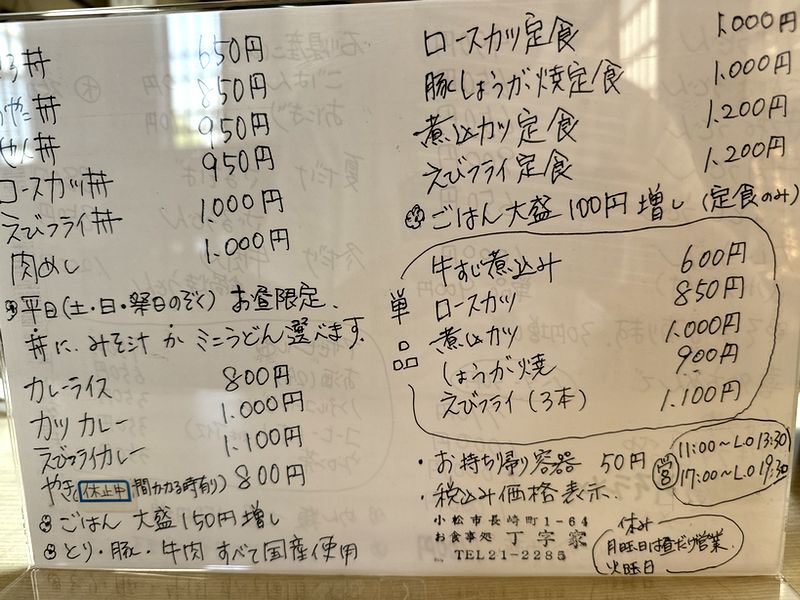 ろ丼 650円
やこ丼 850円
せん丼 950円
ロースカツ丼 950円
えびフライ丼 1.000円
肉めし 1.000円
平日(土・日・祭日のぞく) お昼限定、
丼に、みそ汁 か ミニうどん選べます。
カレーライス 800円
カツ カレー 1.000円
えびフライカレー 1.100円
やき 休止中 間かかる時有り) 800円
ごはん 大盛150円増し
とり・豚・牛肉 すべて国産使用
ロースカツ定食 1.000円
豚しょうが焼定食 1.000円
煮込カツ定食 1.200円
えびフライ定食 1.200円
ごはん大盛100円増し (定食のみ)
単品
牛すじ煮込み 600円
ロースカツ 850円
煮込カツ 1.000円
しょうが焼 900円
えびフライ (3本) 1.100円
・お持ち帰り容器 50円
・税込み価格表示.
営 11:00～L.O 13:30
17:00～L.O 19:30
小松市長崎町1-64
お食事処 丁字家
TEL21-2285
休み
月曜日は昼だけ営業.
火曜日